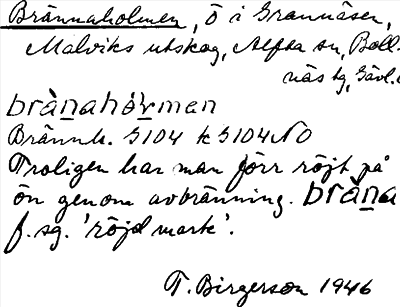 Brännaholmen, ö i Grannäsen,
Malviks utskog, Alfta sn, Boll-
näs tg, Gävl.
brànahòrmen
Brännh. G104 k G104NO
Troligen har man förr röjt på
ön genom avbränning. bràna
f. sg. 'röjd mark'.
T. Birgerson 1946